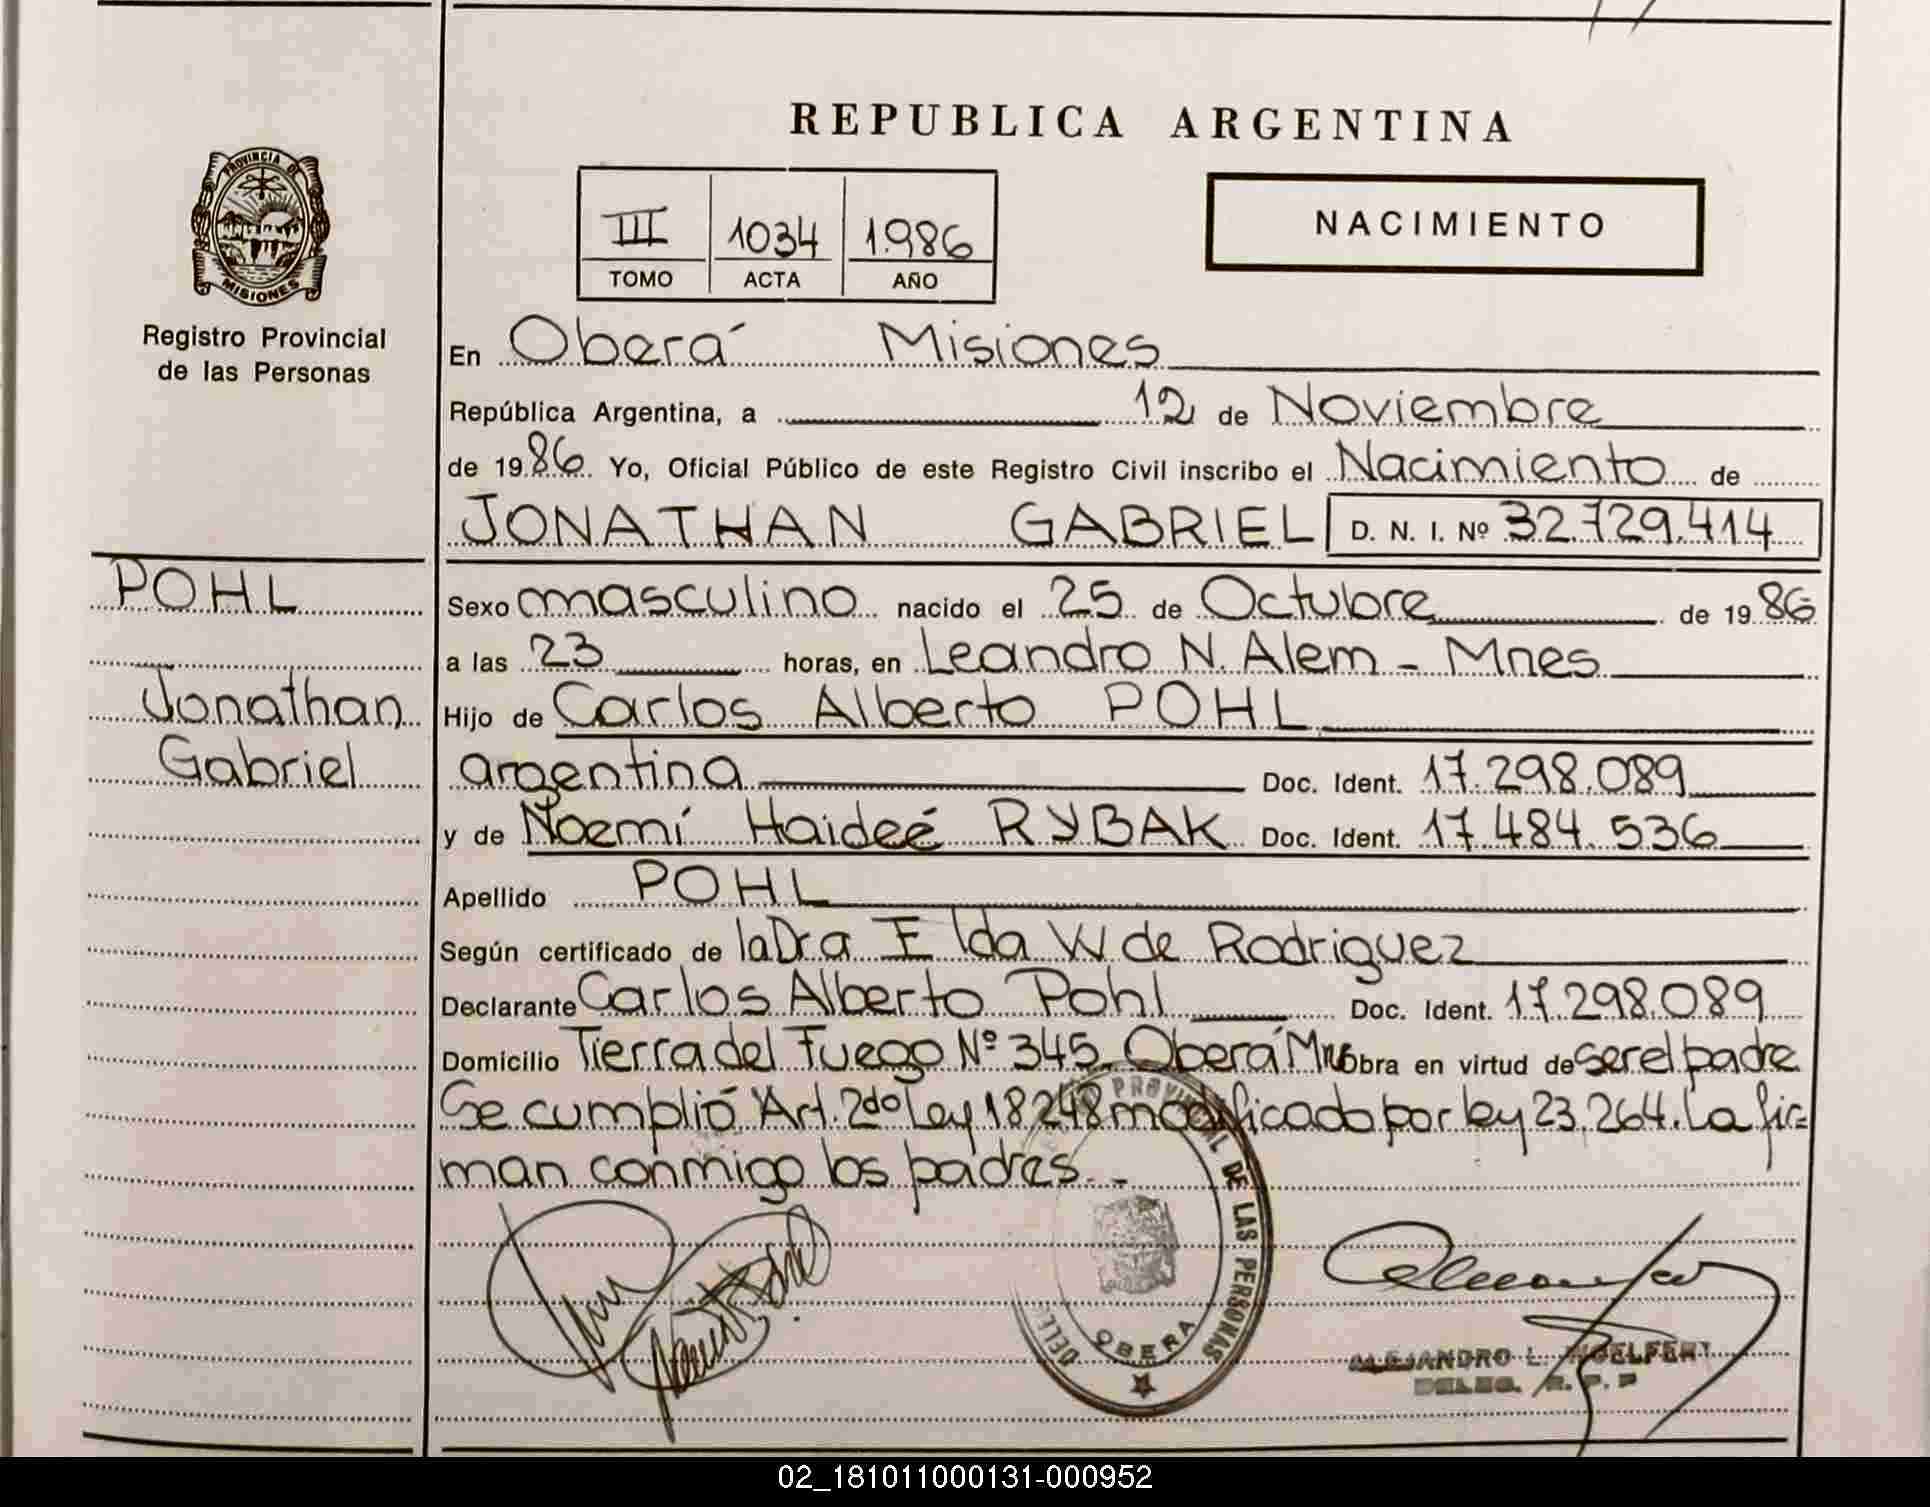 REPUBLICA ARGENTINA
PROVINCIA DE
MISIONES
Registro Provincial
de las Personas
III 1034 1.986
TOMO ACTA AÑO
NACIMIENTO
En Oberá Misiones
República Argentina, a 12 de Noviembre
de 1986 Yo, Oficial Público de este Registro Civil inscribo el Nacimiento de
JONATHAN GABRIEL D. N. I. Nº 32.729.414
POHL
Jonathan
Gabriel
Sexo masculino nacido el 25 de Octubre de 1986
a las 23 horas, en Leandro N. Alem - Mnes
Hijo de Carlos Alberto POHL
argentina Doc. Ident. 17.298.089
y de Noemí Haideé RYBAK Doc. Ident. 17.484.536
Apellido POHL
Según certificado de la Dra Elda W de Rodriguez
Declarante Carlos Alberto Pohl Doc. Ident. 17.298.089
Domicilio Tierra del Fuego Nº 345. Oberá Mnes Obra en virtud de ser el padre
Se cumplió Art. 2do Ley 18248 modificado por ley 23.264. La fir=
man conmigo los padres. -
PROVINCIAL DE LAS PERSONAS
OBERA
ALEJANDRO L.
DELEG. R. P. P
02_181011000131-000952